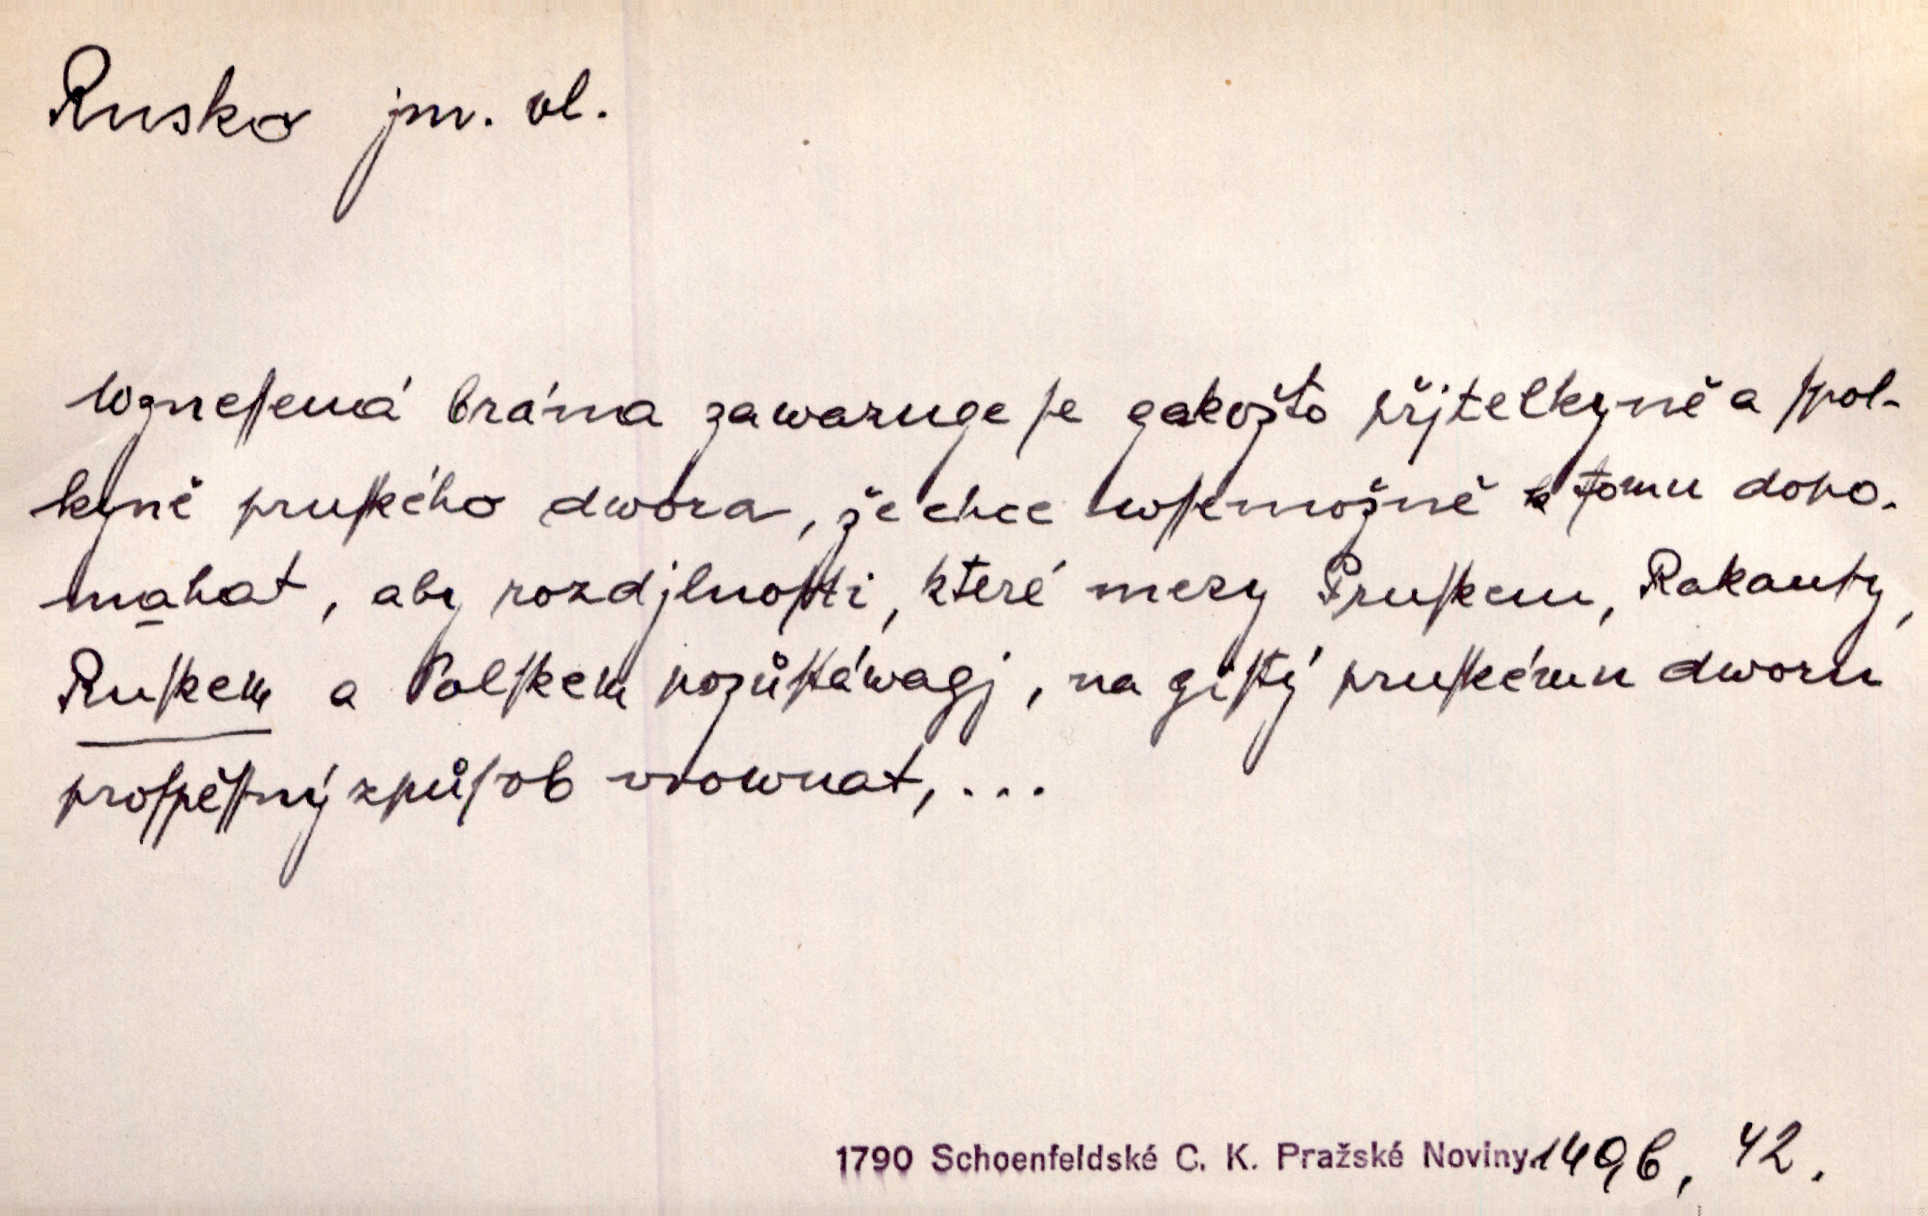 Rusko jm. vl.
Wzneſená brána zawazuge ſe gakožto přjtelkyně a ſpol-
kyně pruſkého dwora, že chce wſſemožně k tomu dopo-
mahat, aby rozdjlnoſti, které mezy Pruſkem, Rakauſy,
Ruſkem a Polſkem pozůſtáwagj, na giſtý pruſkému dworu
proſpěſſný způſob vrownat, ...
1790 Schoenfeldské C. K. Pražské Noviny 149b, 42.